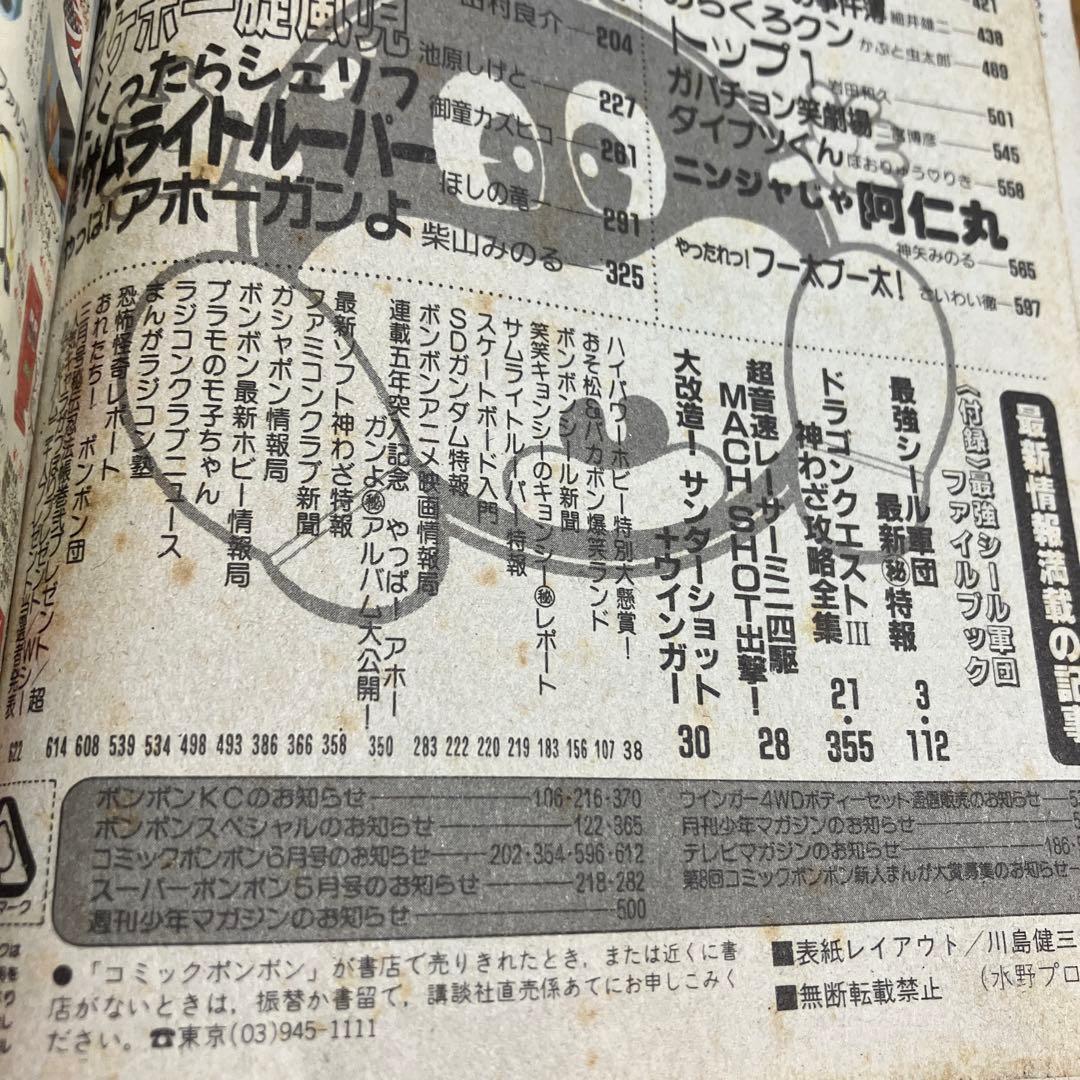 田村良介 204
池原しげと 227
ったらシェリフ 御童カズヒコ 261
サムライトルーパー ほしの竜 291
やっぱ!アホーガンよ 柴山みのる 325
事件簿 細井雄二 421
くろクン かぶと虫太郎 438
トップ1 岩田和久 469
ガバチョン笑劇場 三鷹博彦 501
ダイブツくん ほおりゅう♡りき 545
ニンジャじゃ阿仁丸 神矢みのる 558
565
やったれっ!フー太ブー太! こいわい徹 597
最新情報満載の記事
〈付録〉最強シール軍団
ファイルブック
最強シール軍団
最新㊙特報 3・112
ドラゴンクエストⅢ
神わざ攻略全集 21・355
超音速レーサーミニ四駆
MACH SHOT出撃! 28
大改造!サンダーショット
+ウインガー 30
ハイパワーホビー特別大懸賞! 38
おそ松&バカボン爆笑ランド 107
ボンボンシール新聞 156
笑笑キョンシーのキョンシー㊙レポート 183
サムライトルーパー特報 219
スケートボード入門 220
SDガンダム特報 222
ボンボンアニメ・映画情報局 283
連載五年突入記念 やっぱ!アホー
ガンよ㊙アルバム大公開! 350
最新ソフト神わざ特報 358
ファミコンクラブ新聞 366
ガシャポン情報局 386
ボンボン最新ホビー情報局 493
プラモのモ子ちゃん 498
ラジコンクラブニュース 534
まんがラジコン塾 539
恐怖怪奇レポート 608
おれたちー ボンボン団 614
622
ボンボンKCのお知らせ 106・216・370
ボンボンスペシャルのお知らせ 122・365
コミックボンボン6月号のお知らせ 202・354・596・612
スーパーボンボン5月号のお知らせ 218・282
週刊少年マガジンのお知らせ 500
ウインガー4WDボディーセット通信販売のお知らせ
月刊少年マガジンのお知らせ
テレビマガジンのお知らせ 186
第8回コミックボンボン新人まんが大賞募集のお知らせ
●「コミックボンボン」が書店で売りきれたとき,または近くに書
店がないときは,振替か書留で,講談社直売係あてにお申しこみく
ださい。☎東京(03)945-1111
■表紙レイアウト/川島健三
(水野プロ
■無断転載禁止
マーク